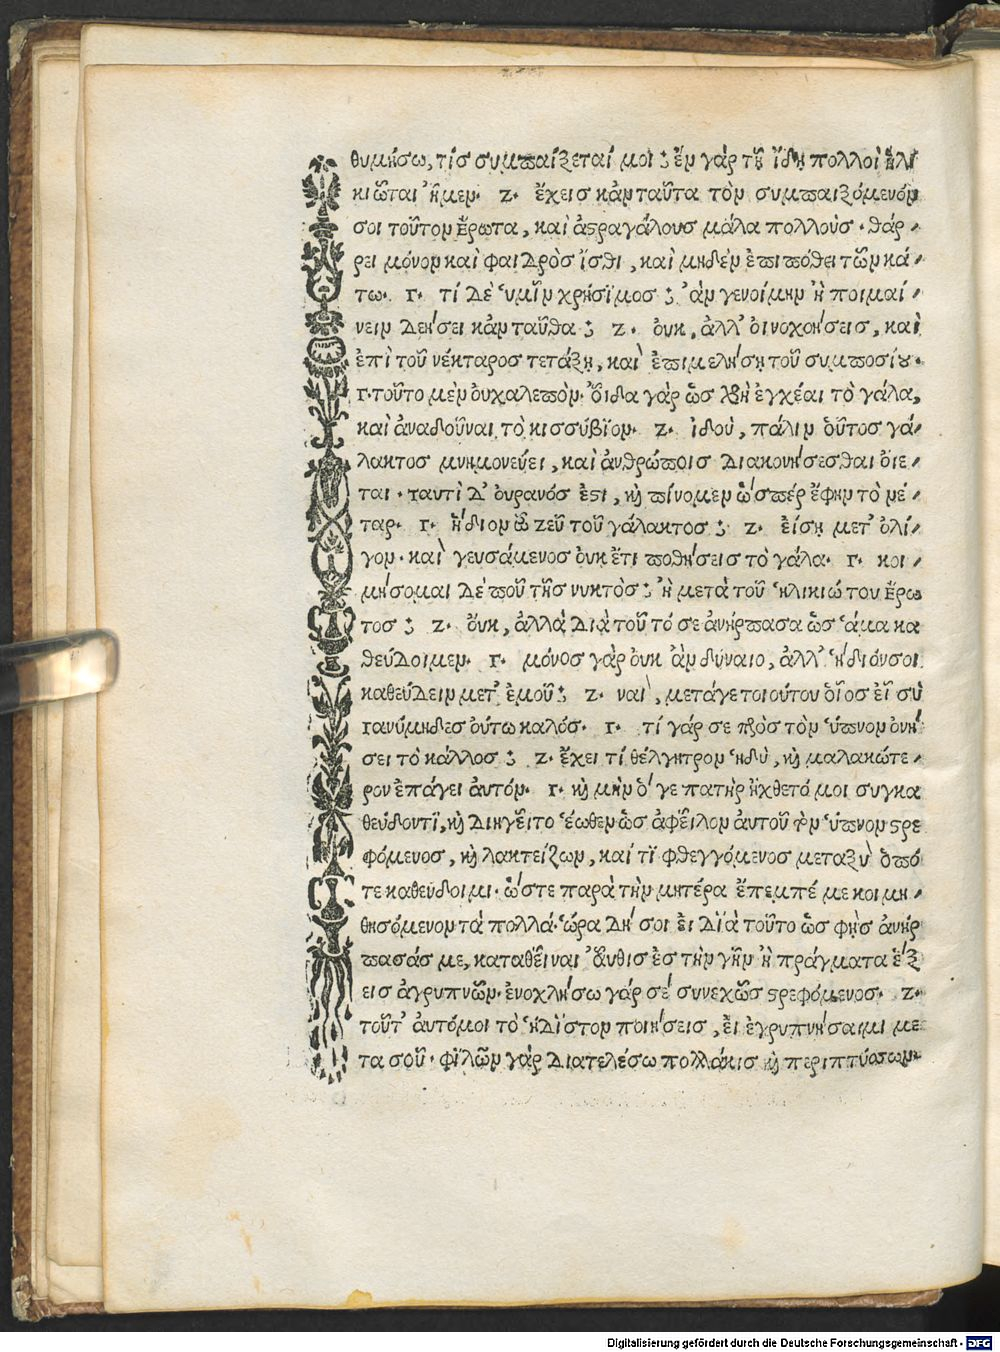 θυμήσω, τίσ συμπαίξεταί μοι; ἔν γὰρ τῆ ἴδῃ πολλοὶ ἡλι
κιῶται ἦμεν. Ζ. ἔχεισ κἀνταῦτα τὸν συμπαιξόμενόν
σοι τοῦτον ἔρωτα, καὶ ἀστραγάλουσ μάλα πολλοὺσ. θάρ,
ρει μόνον καὶ φαιδρὸσ ἴσθι, καὶ μηδὲν ἐπιπόθει τῶν κά,
τω. Γ. τί δὲ ὑμῖν χρήσϊμοσ; ἀν γενοίμην ἢ ποιμαί,
νειν δεήσει κἀνταῦθα; Ζ. ὀυκ, ἀλλ' ὀινοχοήσεισ, καὶ
ἐπὶ τοῦ νέκταροσ τετάξῃ, καὶ ἐπιμελήσῃ τοῦ συμποσίου.
Γ. τοῦτο μὲν ὀυχαλεπὸν. ὄιδα γὰρ ὡσ χρὴ ἐγχέαι τὸ γάλα,
καὶ ἀναδοῦναι τὸ κισσύβϊον. Ζ. ἰδοὺ, πάλιν ὁῦτοσ γά,
λακτοσ μνημονεύει, καὶ ἀνθρώποισ διακονήσεσθαι ὄιε,
ται. ταυτὶ δ' ὀυρανόσ ἐστι, καὶ πίνομεν ὥσπέρ ἔφην τὸ νέ,
ταρ. Γ. ἥδιον ὦ ζεῦ τοῦ γάλακτοσ; Ζ. ἐίσῃ μετ' ὀλί,
γον. καὶ γευσάμενοσ ὀυκ ἔτι ποθήσεισ τὸ γάλα. Γ. κοι,
μήσομαι δὲ ποῦ τῆσ νυκτὸσ; ἢ μετὰ τοῦ ἡλικιώτου ἔρω
τοσ; Ζ. ὄυκ, ἀλλὰ διὰ τοῦτό σε ἀνήρπασα ὡσ ἅμα κα
θεύδοιμεν. Γ. μόνοσ γὰρ ὀυκ ἀν δύναιο, ἀλλ' ἡδιόνσοι
καθεύδειν μετ' ἐμοῦ; Ζ. ναὶ, μετάγε τοιούτου ὁῖοσ ἐῖ σὺ
γανύμηδεσ ὀύτω καλόσ. Γ. τί γάρ σε πρὸσ τὸν ὕπνον ὀνή
σει τὸ κάλλοσ; Ζ. ἔχει τί θέλγητρον ἡδὺ, καὶ μαλακώτε,
ρον ἐπάγει ἀυτόν. Γ. καὶ μὴν ὅ γε πατὴρ ἤχθετό μοι συγκα
θεύδοντϊ, καὶ διηγεῖτο ἕωθεν ὡσ ἀφεῖλον ἀυτοῦ τὸν ὕπνον στρε
φόμενοσ, καὶ λακτείζων, καί τϊ φθεγγόμενοσ μεταξὺ ὁπό
τε καθεύδοιμι. ὥστε παρὰ τὴν μητέρα ἔπεμπέ με κοιμη,
θησόμενον τὰ πολλά. ὥρα δή σοι ἐι δϊὰ τοῦτο ὡσ φῂσ ἀνήρ
πασάσ με, καταθεῖναι ἄυθισ ἐσ τὴν γῆν ἢ πράγματα ἕξ
εισ ἀγρυπνῶν. ἐνοχλήσω γάρ σέ συνεχῶσ στρεφόμενοσ. Ζ.
τοῦτ' ἀυτόμοι τὸ ἥδϊστον ποιήσεισ, ἐι ἐγρυπνήσαιμι με
τα σοῦ. φϊλῶν γὰρ διατελέσω πολλάκισ καὶ περιπτύσσων
Digitalisierung gefördert durch die Deutsche Forschungsgemeinschaft - DFG